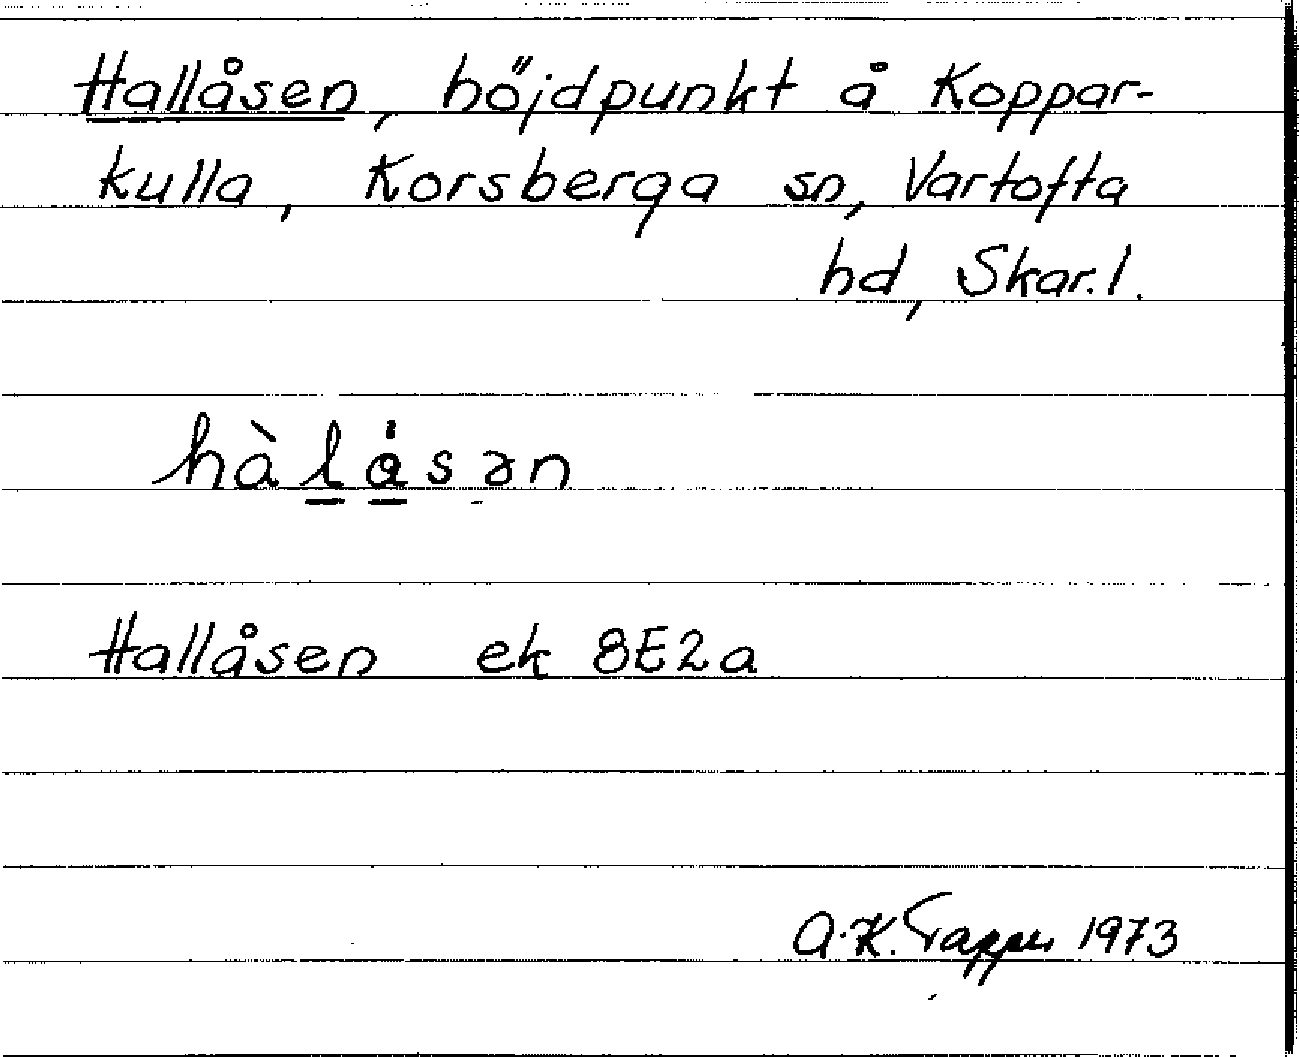 Hallåsen, höjdpunkt å Koppar-
kulla, Korsberga sn, Vartofta
hd, Skar. l.
hàlåsən
Hallåsen ek 8E2a
A.K. 1973